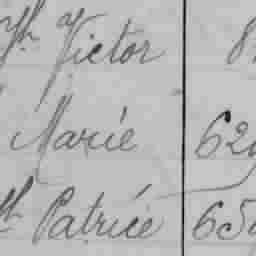 Jh Victor 8
Marie 629
Patrice 65